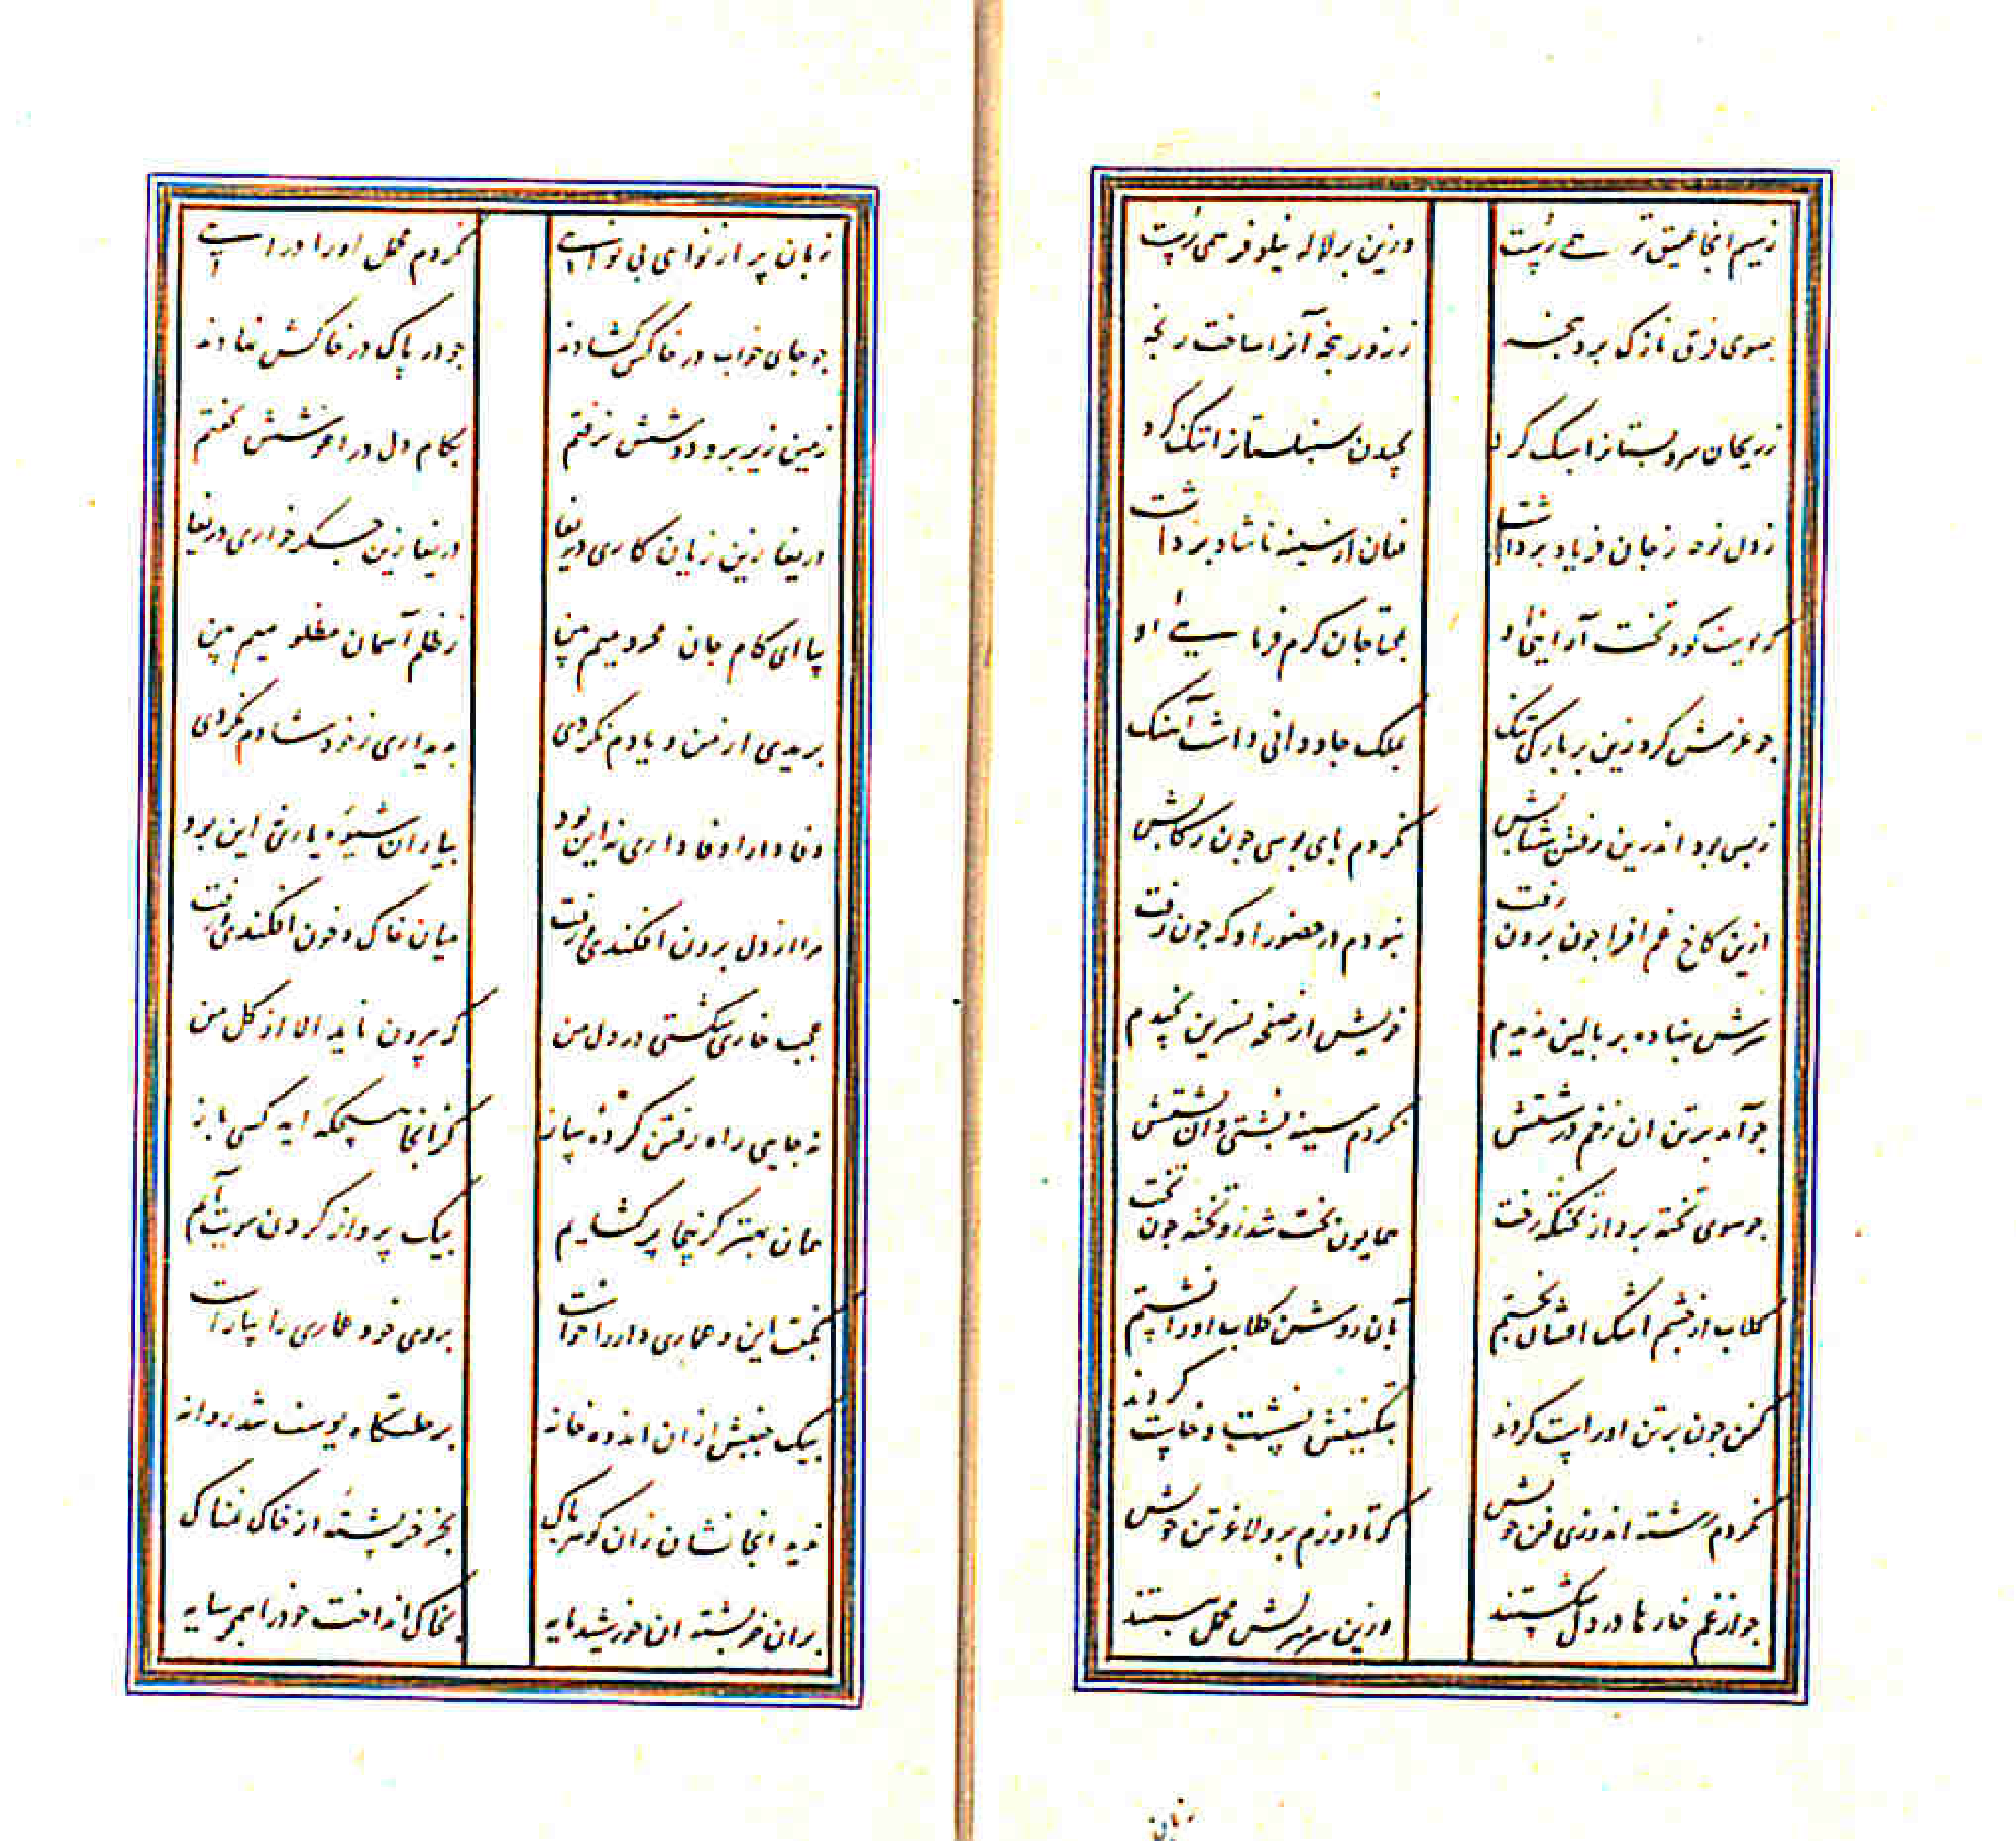 زسیم انجا عقیق تر همی رُپت وزین بر لاله نیلوفر همی رُپت
بسوی فرق نازک برد پنجه ز زور پنجه آنرا ساخت رنجه
ز ریحان سرو بستانرا سبک کرد بچیدن سنبلستانرا تنک کرد
ز دل نوحه ز جان فریاد برداشت فغان از سینه ناشاد برداشت
که یوسف کو و تخت آرایی او بمحتاجان کرم فرمایی او
جو عزمش کرد زین بر بارکی تنک بملک جاودانی داشت آهنک
ز بس بود اندرین رفتن شتابش نکردم پای بوسی جون رکابش
ازین کاخ غم افزا جون برون رفت نبودم در حضور او که جون رفت
سرش بنهاده بر بالین ندیدم خویش از صفحه نسرین نچیدم
جو آمد بر تن ان زخم درشتش نکردم سینه پشتی وان پشتش
جو سوی تخته برد از تختکه رخت همایون تخت شد زو تخته جون تخت
کلاب از چشم اشک افشان نجستم بآن روشن کلاب او را نشستم
کفن جون بر تن او راست کردند بتکفینش نشست و خاست کردند
نکردم رشته اندوزی فن خویش که تا دوزم برو لاغر تن خویش
جو از غم خارها در دل شکستند وزین سرمنزلش محمل ببستند
زبان پر از نوای بی نوایی نکردم محمل او را درایی
جو جای خواب در خاکش کشادند جو در پاک در خاکش نهادند
زمین زیر برو دوشش نرفتم بکام دل در اغوشش نخفتم
دریغا زین زیان کاری دریغا دریغا زین جکر خواری دریغا
بیا ای کام جان محرومیم بین ز ظلم آسمان مظلومیم بین
بریدی از من و یادم نکردی بدیداری ز خود شادم نکردی
وفادارا وفاداری نه این بود بیاران شیوه یاری این بود
مرا از دل برون افکندی و رفت میان خاک و خون افکندی و رفت
عجب خاری شکستی در دل من که بیرون ناید الا از کل من
نه جایی راه رفتن کرده ساز کز انجا هیچکه اید کسی باز
همان بهتر کزینجا پر کشایم بیک پرواز کردن سویت آیم
بکفت این و عماری دار را خواست بروی خود عماری را بیاراست
بیک جنبش از ان اندوه خانه برحلتکاه یوسف شد روانه
ندید انجا نشان زان کوهر پاک بجز خرپشتهٔ از خاک نمناک
بران خرپشته ان خورشید پایه بخاک انداخت خود را همچو سایه
زبان